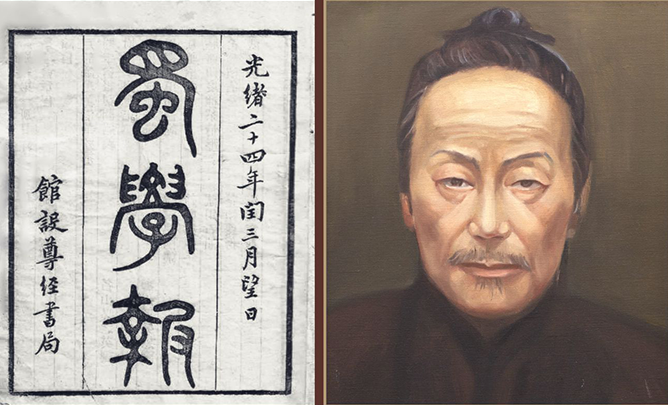 光緒二十四年閏三月望日
蜀學報
館設尊經書局